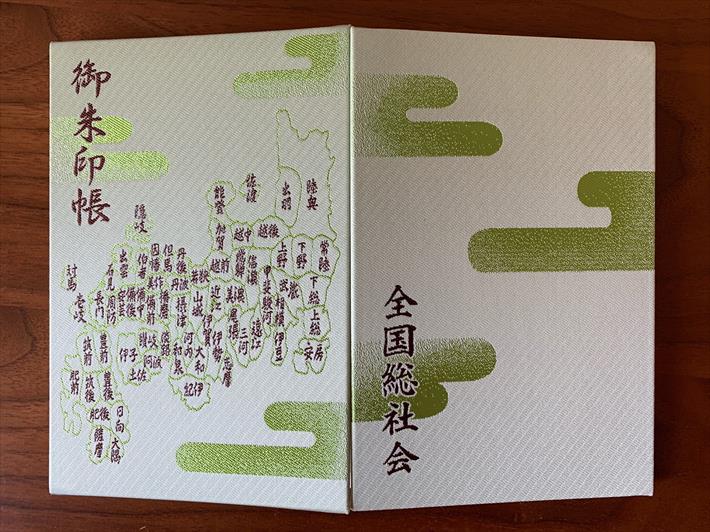 御朱印帳
陸奥
出羽
佐渡
能登
加賀
越中
越後
隠岐
上野
下野
常陸
信濃
飛騨
越前
武蔵
下総
上総
安房
甲斐
駿河
相模
伊豆
遠江
三河
尾張
美濃
近江
若狭
丹後
丹波
但馬
因幡
伯耆
出雲
石見
美作
播磨
備前
備中
備後
安芸
周防
長門
山城
摂津
河内
和泉
大和
伊賀
伊勢
志摩
紀伊
淡路
讃岐
阿波
伊予
土佐
対馬
壱岐
筑前
筑後
豊前
豊後
肥前
肥後
日向
大隅
薩摩
全国総社会